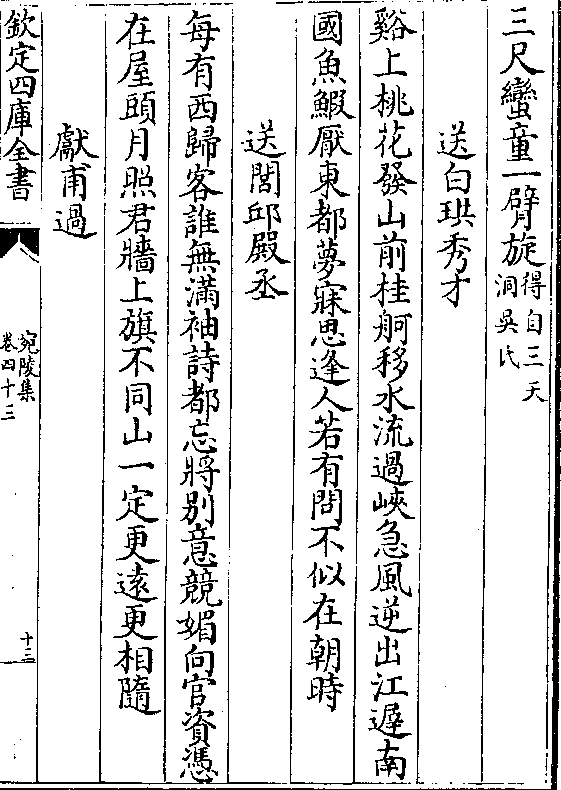 三尺蠻童一臂旋得自三天
洞吳氏
送白珙秀才
谿上桃花發山前桂舸移水流過峽急風逆出江遲南
國魚鰕厭東都夢寐思逢人若有問不似在朝時
送閭邱殿丞
每有西歸客誰無滿袖詩都忘將别意競媚向官資憑
在屋頭月照君牆上旗不同山一定更逺更相隨
獻甫過
欽定四庫全書
宛陵集
卷四十三
十三